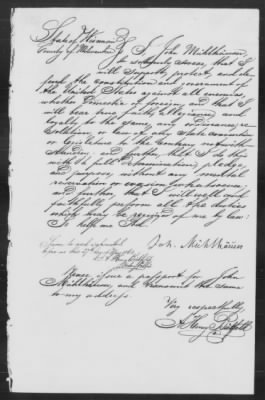 State of Wisconsin
County of Milwaukee
I, John Mühlhäuser,
do solemnly swear, that I
will support, protect, and de-
fend the constitution and government of
the United States against all enemies,
whether domestic or foreign, and that I
will bear true faith, allegiance and
loyalty to the same, any ordinance, re-
solution, or law of any state convention
or legislature to the contrary notwith-
standing; and further, that I do this
with a full determination, pledge
and purpose, without any mental
reservation or evasion whatsoever;
and further, that I will well and
faithfully perform all the duties
which may be required of me by law:
So help me God.
Joh. Mühlhäuser
Sworn to and subscribed
before me this
Please issue a passport for John
Mühlhäuser, and transmit the same
to my address.
Very respectfully,
Henry